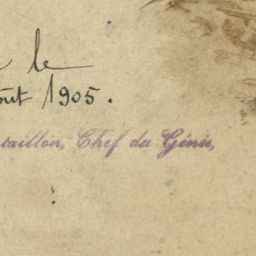 le
oût 1905.
taillon, Chef du Génie,